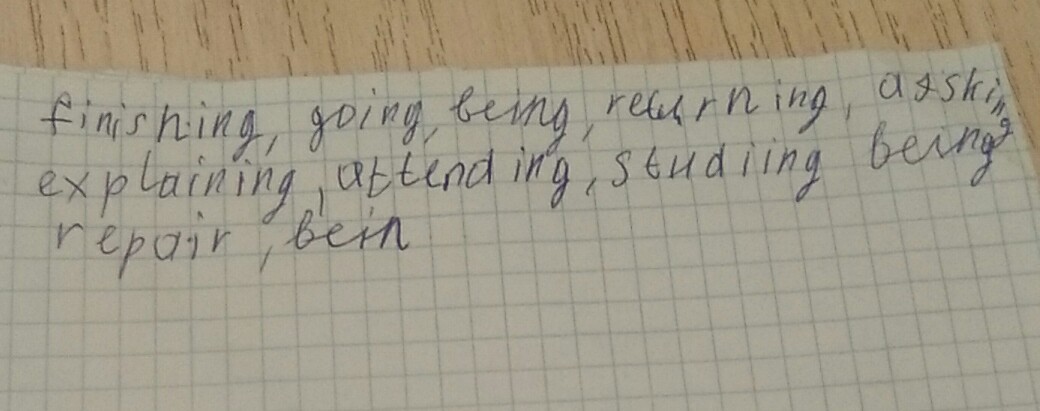 finishing, going, being, returning, asking
explaining, attending, studiing being
repair, bein